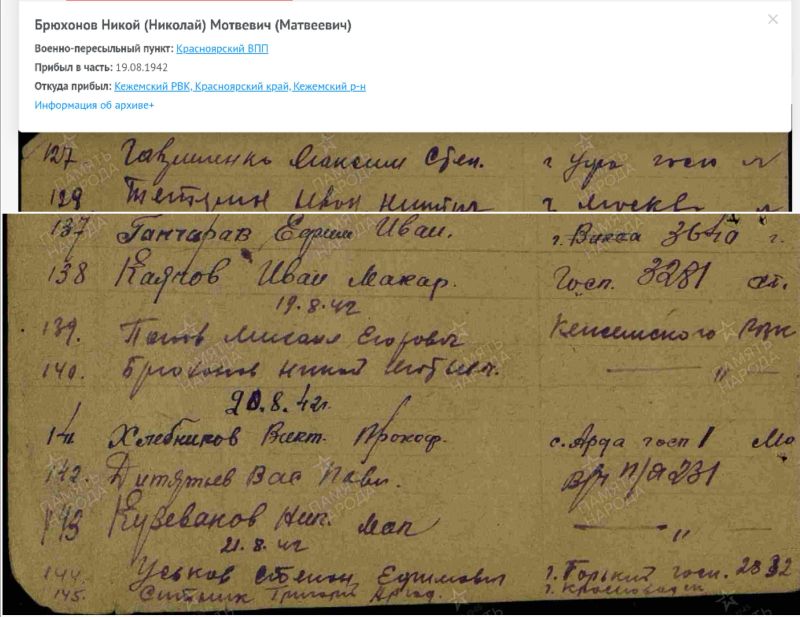 Брюхонов Никой (Николай) Мотвевич (Матвеевич)
Военно-пересыльный пункт: Красноярский ВПП
Прибыл в часть: 19.08.1942
Откуда прибыл: Кежемский РВК, Красноярский край, Кежемский р-н
Информация об архиве+
127 Гавриленко Максим Степ. г Уфа госп
129 Тетерин Иван Никит г. Москва
137 Ганчарав Ефрем Иван. г. Викса 3640 г.
138 Иван Макар. Госп. 3281 ст.
19.8.42
139. Попов Михаил Егорович Кежемского РВК
140. Брюхонов Никой — " —
20.8.42г.
Хлебников Викт. Прокоф. с. Арда госп 1
142. Вас Павл. п/я 231
143 Ник. — "
21.8.42
144. Уськов Степан Ефимович г. Горький госп. 2832
145. Ситник Григорий г.